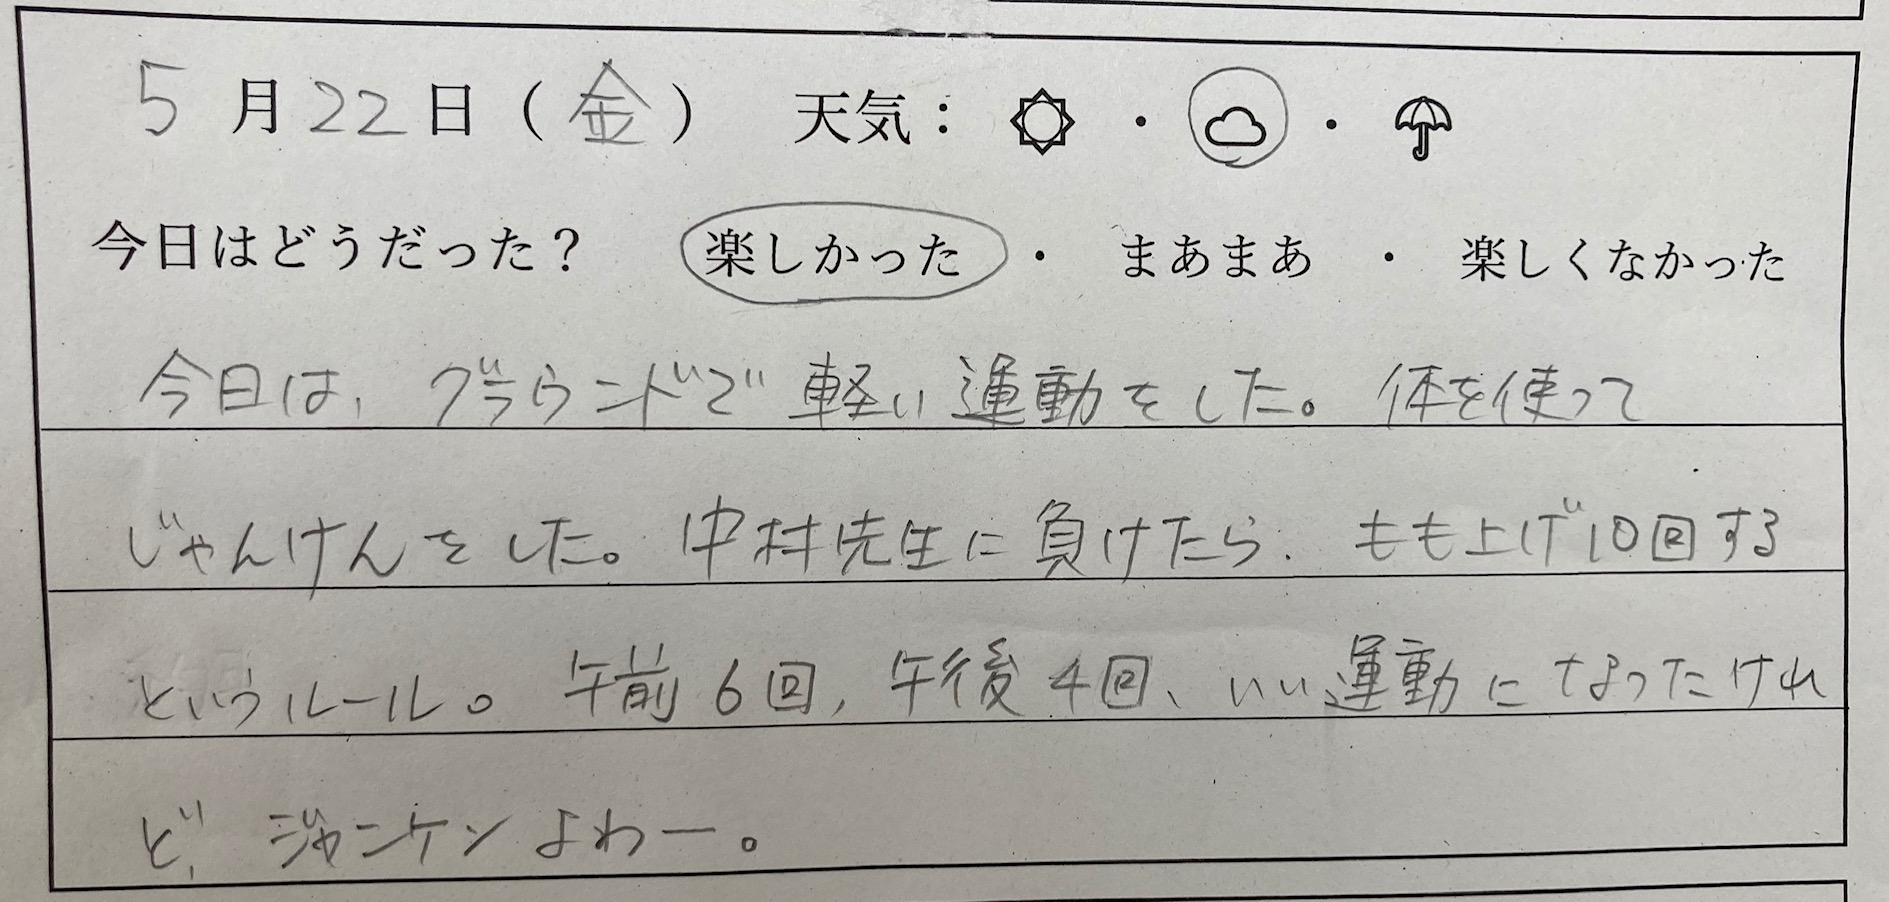 5月22日（金） 天気： ・ ・
今日はどうだった？ 楽しかった ・ まあまあ ・ 楽しくなかった
今日は、グラウンドで軽い運動をした。体を使って
じゃんけんをした。中村先生に負けたら、もも上げ10回する
というルール。午前6回、午後4回、いい運動になったけれ
ど、ジャンケンよわー。